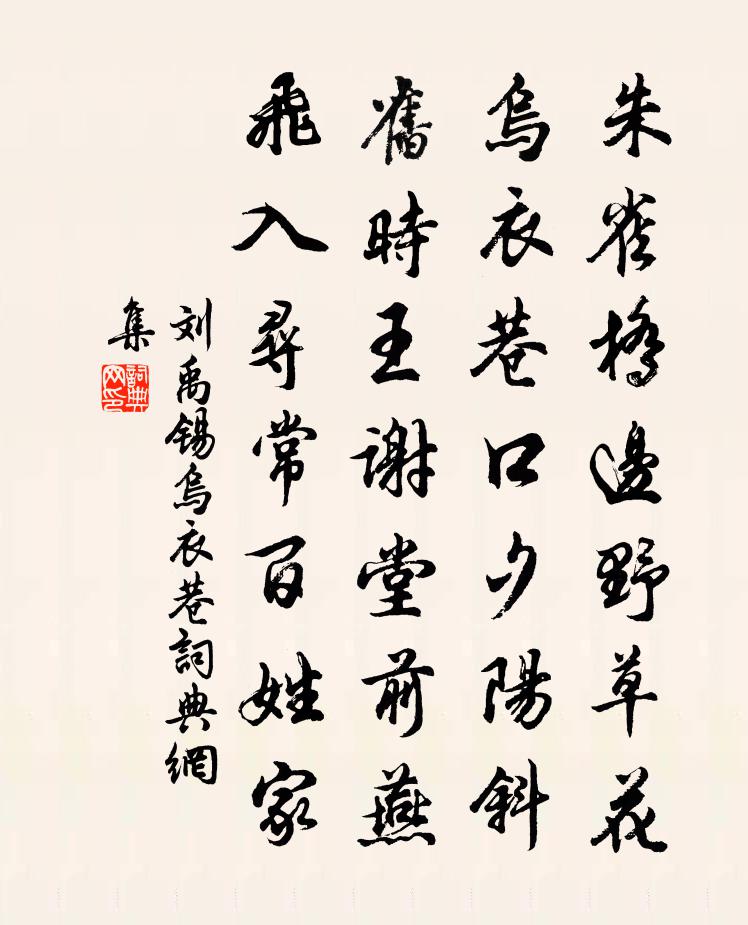 朱雀橋邊野草花
烏衣巷口夕陽斜
舊時王謝堂前燕
飛入尋常百姓家
刘禹锡烏衣巷詞典網
集
詞典网印